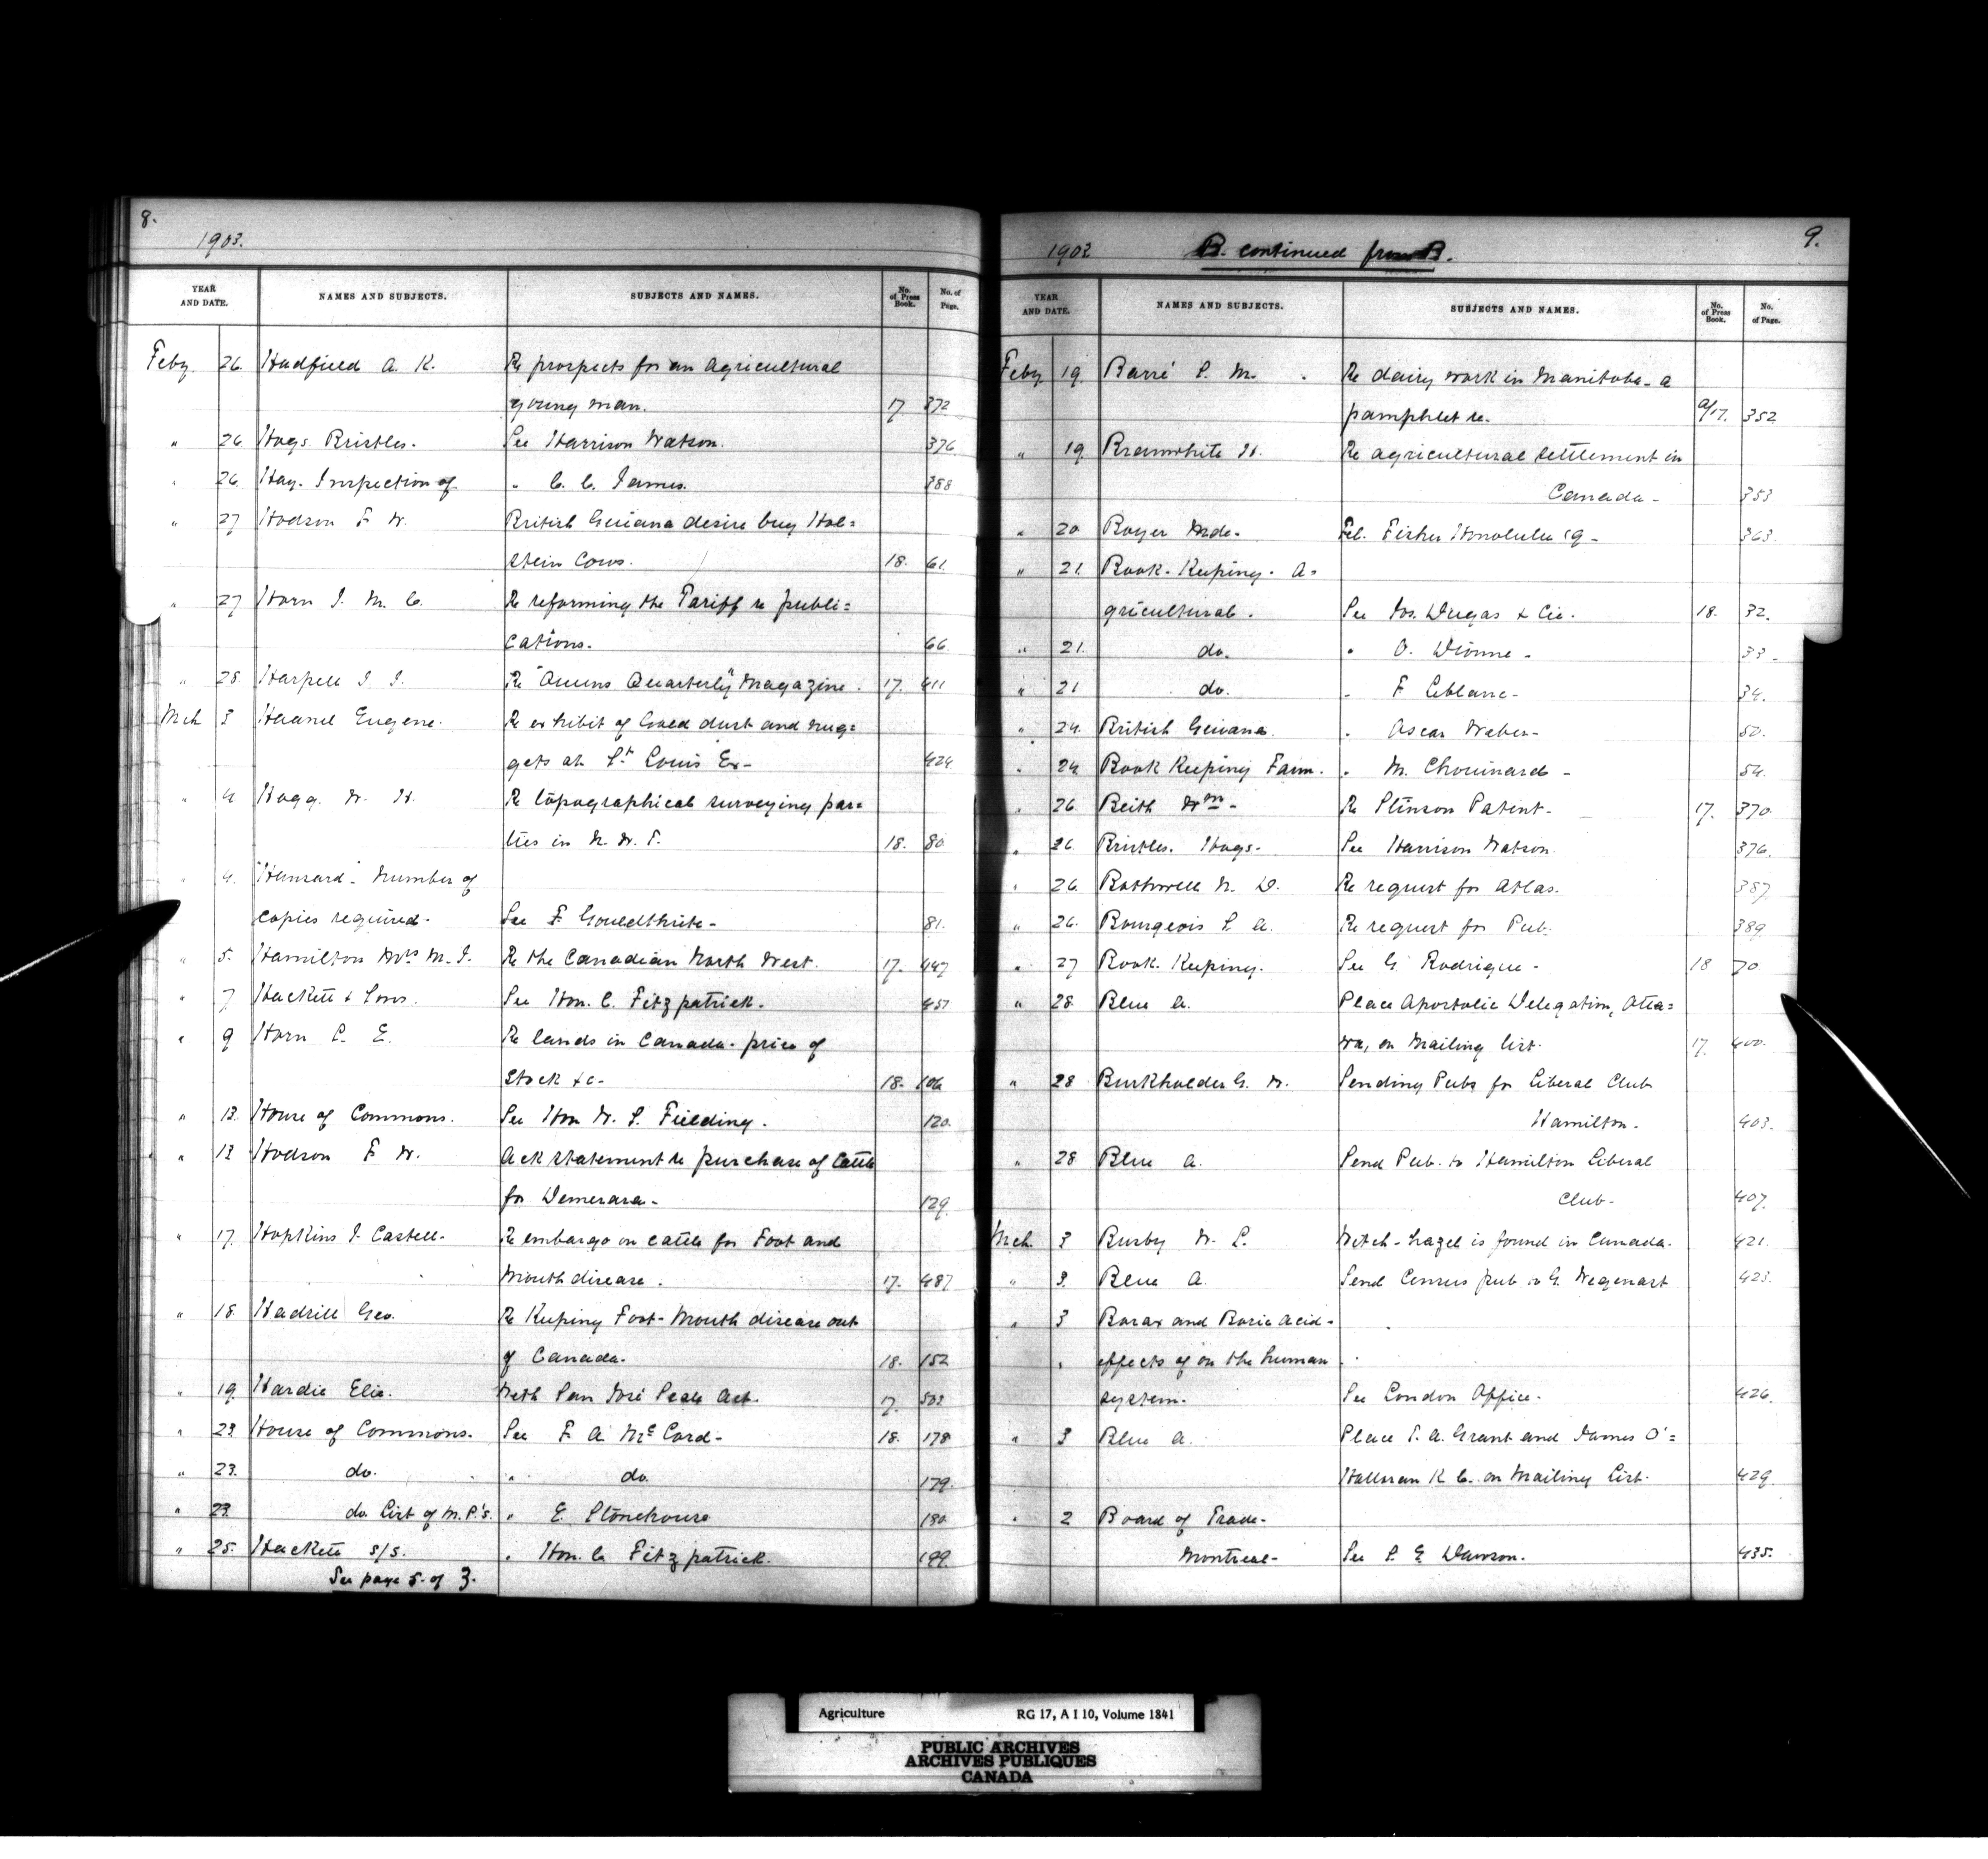 8.
1903.
YEAR AND DATE. NAMES AND SUBJECTS. SUBJECTS AND NAMES. No. of Press Book. No. of Page.
Feby 26. Hadfield A. K. Re prospects for an agricultural
young man. 17. 372
" 26. Hogs Bristles. See Harrison Watson. 376
" 26. Hay. Inspection of " C. C. James. 388
" 27 Hodson F. W. British Guiana desire buy Hol=
stein Cows. 18. 61.
" 27 Horn J. M. C. Re reforming the Tariff re publi=
cations. 66.
" 28. Harpell J. J. Re "Queens Quarterly" Magazine. 17. 411
Mch 3 Haanel Eugene. Re exhibit of Gold dust and nug=
gets at St. Louis Ex- 424
" 4. Hogg. W. H. Re topographical surveying par=
ties in N. W. T. 18. 80
" 4. "Hansard". Number of
copies required. See F. Gouldthrite- 81.
" 5. Hamilton Mrs M. J. Re the Canadian North West. 17. 447
" 7 Hackett & Sons. See Hon. C. Fitzpatrick. 451
" 9 Horn C. E. Re lands in Canada. price of
Stock &c- 18. 106
" 13. House of Commons. See Hon W. S. Fielding. 120.
" 13 Hodson F. W. Ack statement re purchase of Cattle
for Demerara- 129.
" 17. Hopkins J. Castell- Re embargo on cattle for Foot and
Mouth disease. 17. 487
" 18. Hadrill Geo. Re Keeping Foot-Mouth disease out
of Canada. 18. 152
" 19. Hardie Elie. San José Scale Act. 17. 502.
" 23 House of Commons. See F. A. McCord- 18. 178
" 23. do. " do. 179.
" 23. do List of M.P.'s. " E. Stonehouse 180.
" 25. Hackett s/s. " Hon. C. Fitzpatrick. 199.
See page 5. of 3.
9.
1903 B. continued from B.
YEAR AND DATE. NAMES AND SUBJECTS. SUBJECTS AND NAMES. No. of Press Book. No. of Page.
Feby 19. Barré S. M. Re dairy work in Manitoba- a
pamphlet re. a/17. 352
" 19. Bramwhite H. Re agricultural settlement in
Canada- 353
" 20 Boyer Mde- Tel. Fisher Honolulu 19- 363.
" 21. Book-Keeping. A=
gricultural. See Jos. Dugas & Cie. 18. 32.
" 21. do. " O. Dionne- 33.
" 21 do. " F Leblanc- 34.
" 24. British Guiana. " Oscar Weber- 50.
" 24. Book Keeping Farm. " M. Chouinard- 54.
" 26. Beith Wm- Re Stinson Patent- 17. 370.
" 26. Bristles. Hogs- See Harrison Watson. 376.
" 26. Bothwell N. D. Re request for Atlas. 387.
" 26. Bourgeois S. A. Re request for Pub. 389.
" 27 Book-Keeping. See G Rodrigue- 18 70
" 28. Blue A. Place Apostolic Delegation, Otta=
wa, on Mailing list. 17. 400.
" 28 Burkholder G. W. Sending Pubs for Liberal Club
Hamilton. 403.
" 28 Blue A. Send Pub. to Hamilton Liberal
Club- 407.
Mch. 3 Busby W. L. Witch-hazel is found in Canada. 421.
" 3. Blue A. Send Census pub to G. Wegenast 423.
" 3 Borax and Boric Acid-
" effects of on the human
system. See London Office- 426.
" 3 Blue A. Place T. A. Grant and James O'=
Halloran K C. on Mailing List. 429.
" 2 Board of Trade-
Montreal- See S. E. Dawson. 435.
Agriculture RG 17, A I 10, Volume 1841
PUBLIC ARCHIVES
ARCHIVES PUBLIQUES
CANADA